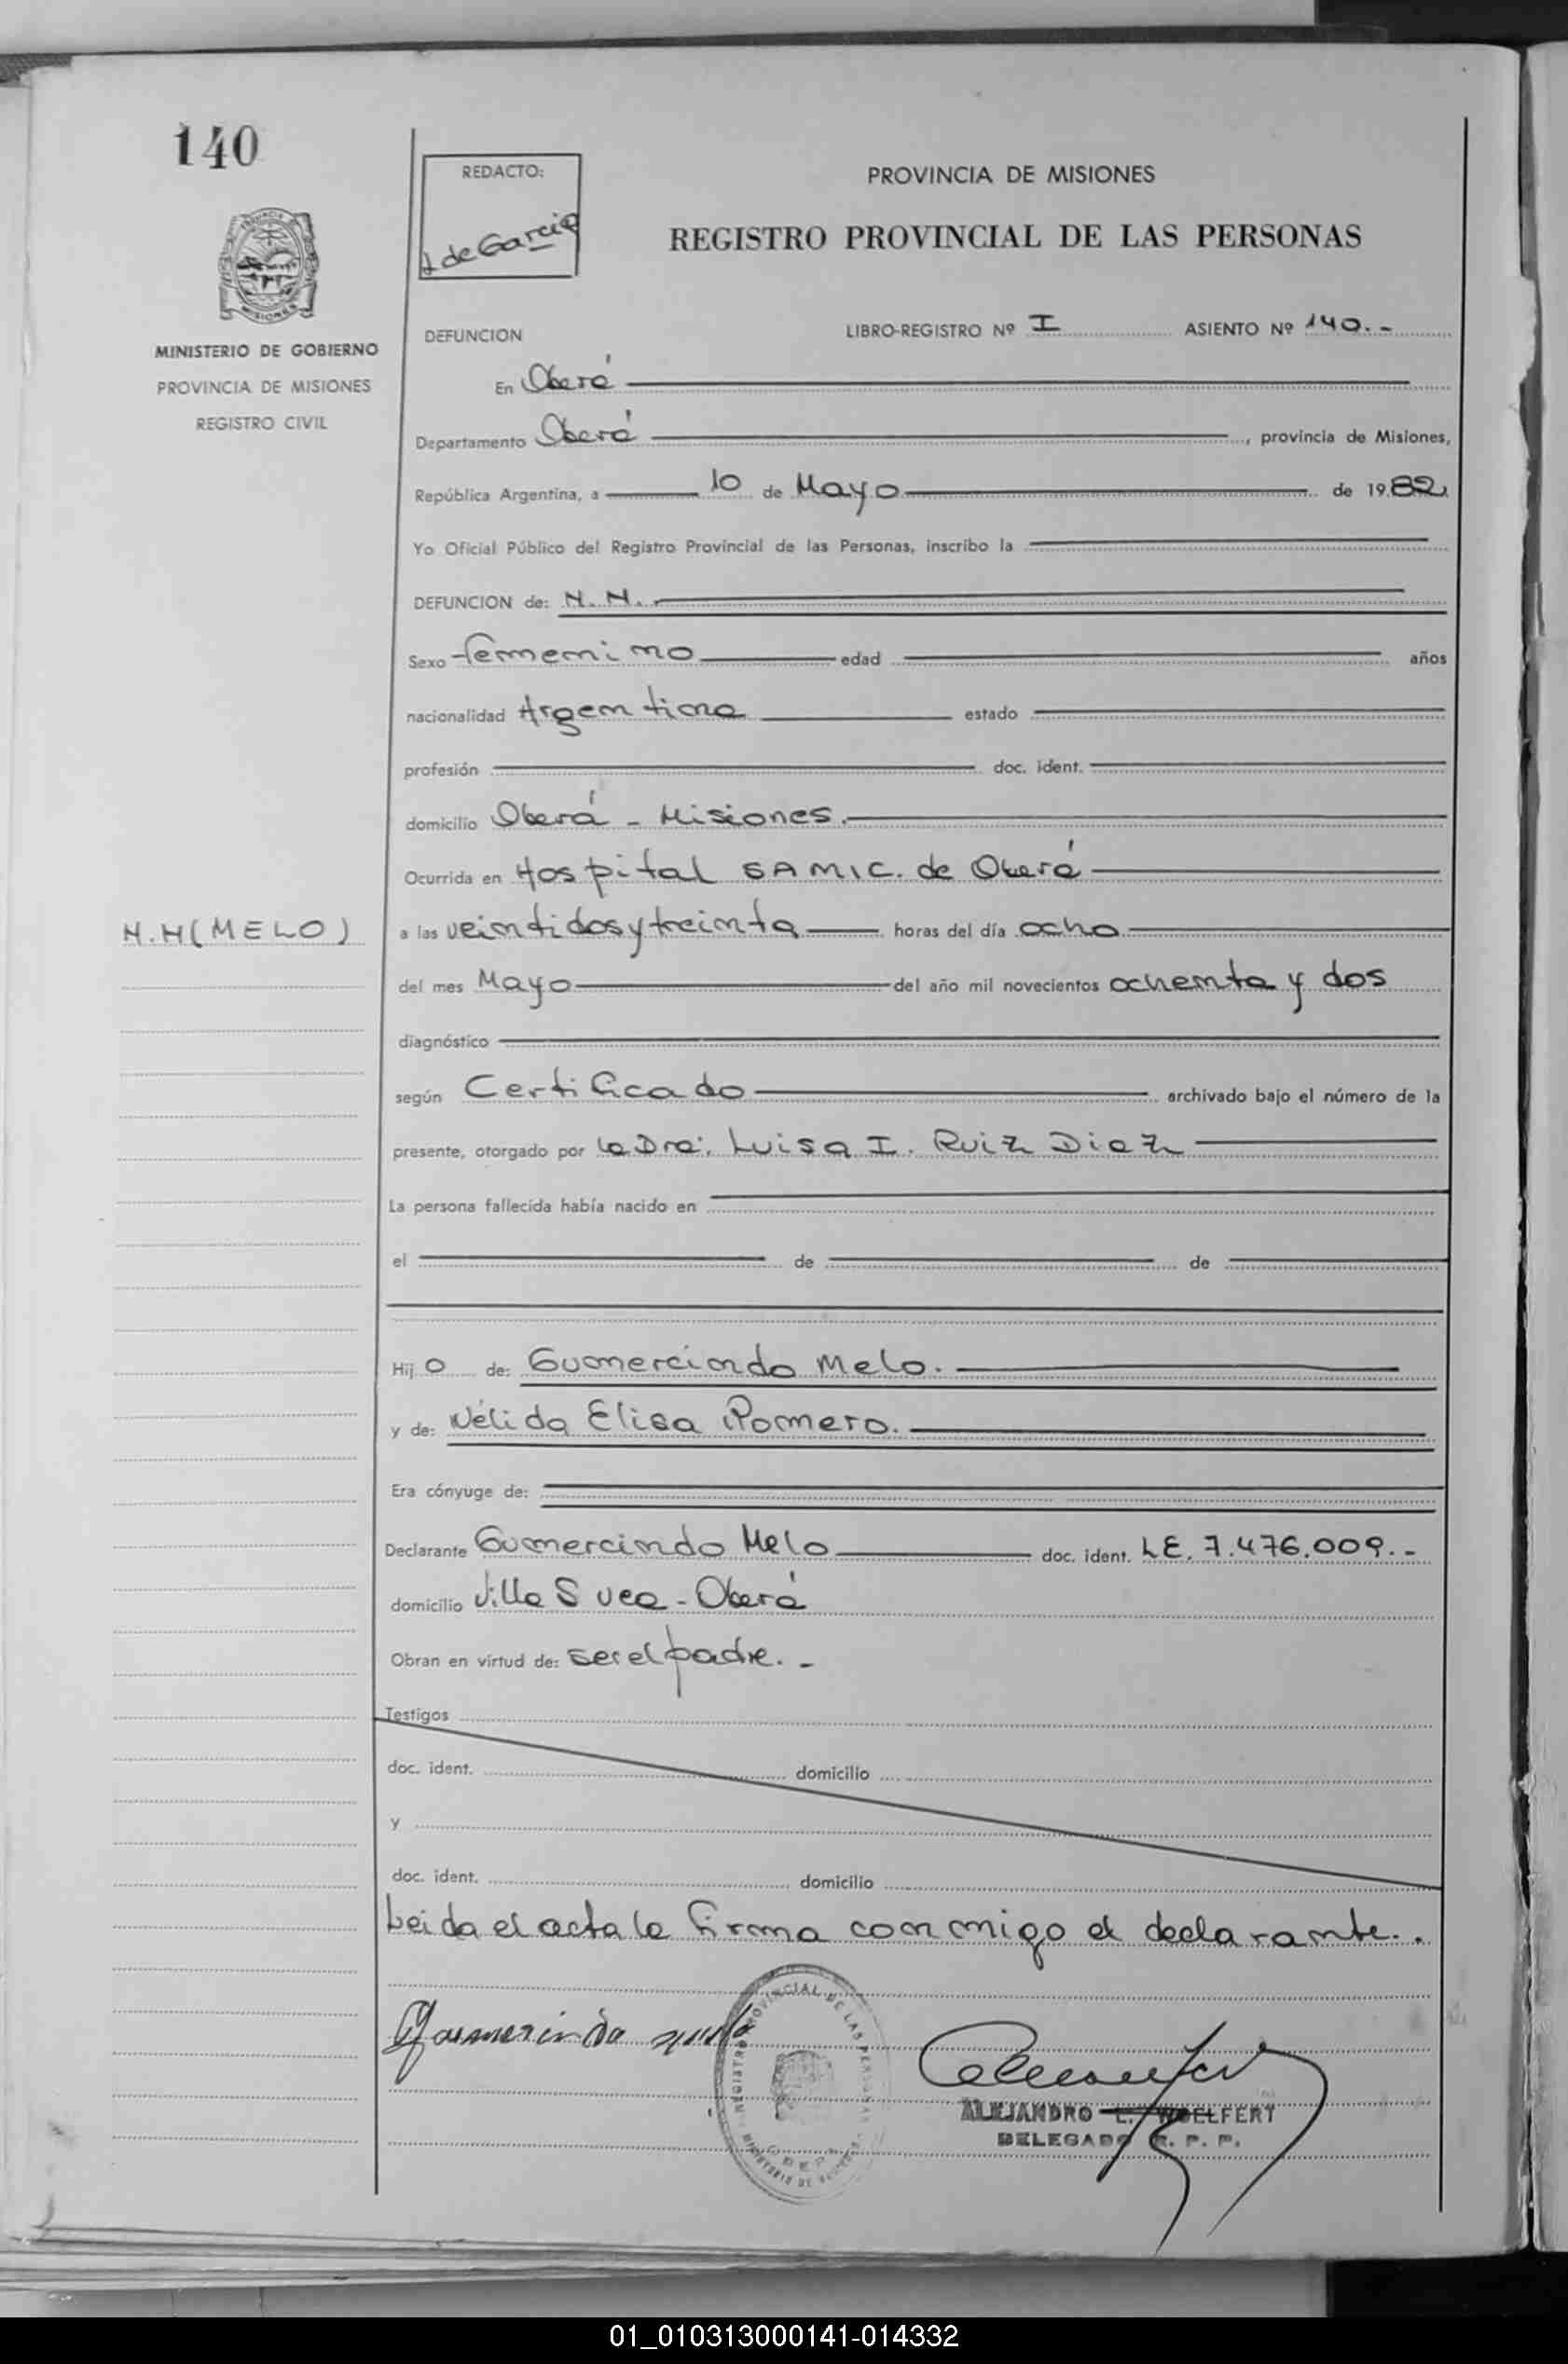 140
REDACTO:
de Garcia
PROVINCIA DE MISIONES
REGISTRO PROVINCIAL DE LAS PERSONAS
MISIONES
MINISTERIO DE GOBIERNO
PROVINCIA DE MISIONES
REGISTRO CIVIL
DEFUNCION LIBRO-REGISTRO Nº I ASIENTO Nº 140.-
En Oberá
Departamento Oberá, provincia de Misiones,
República Argentina, a 10 de Mayo de 1982
Yo Oficial Público del Registro Provincial de las Personas, inscribo la
DEFUNCION de: N.N.
Sexo femenino edad años
nacionalidad Argentina estado
profesión doc. ident.
domicilio Oberá - Misiones.
Ocurrida en Hospital SAMIC. de Oberá
N.N (MELO)
a las veintidos y treinta horas del día ocho
del mes Mayo del año mil novecientos ochenta y dos
diagnóstico
según Certificado archivado bajo el número de la
presente, otorgado por la Dra. Luisa I. Ruiz Diaz
La persona fallecida había nacido en
el de de
Hij o de: Gumercindo Melo.
y de: Nélida Elisa Romero.
Era cónyuge de:
Declarante Gumercindo Melo doc. ident. LE. 7.476.009.-
domicilio Villa Svea - Oberá
Obran en virtud de: ser el padre. -
Testigos
doc. ident. domicilio
y
doc. ident. domicilio
Leida el acta la firma conmigo el declarante..
REGISTRO PROVINCIAL DE LAS PERSONAS
ALEJANDRO L. WOELFERT
DELEGADO R. P. P.
01_010313000141-014332